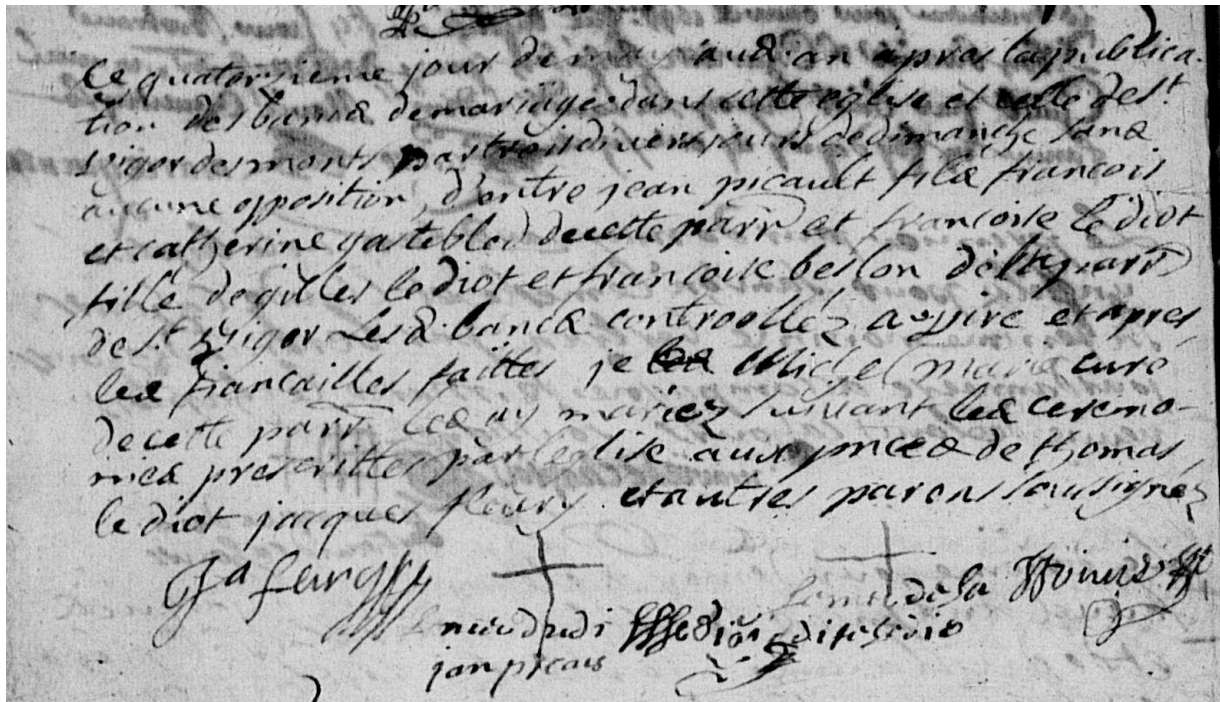 ce quatorzieme jour de may aud. an apres la publica-
tion des bans de mariage dans cette eglise et celle de st
vigor des monts par trois divers jours de dimanche sans
aucune opposition, d'entre jean picault fils francois
et catherine gastebled de cette parr et francoise le diot
fille de gilles le diot et francoise beslon de la parr
de st vigor lesd. bans controollez a vire et apres
les fiancailles faittes je Michel marie curé
de cette parr les ay mariez suivant les ceremo-
nies prescrittes par l'eglise aux pnces de thomas
le diot jacques fleury et autres parens soussignez
la marque dudi
jan picais
le merc de la